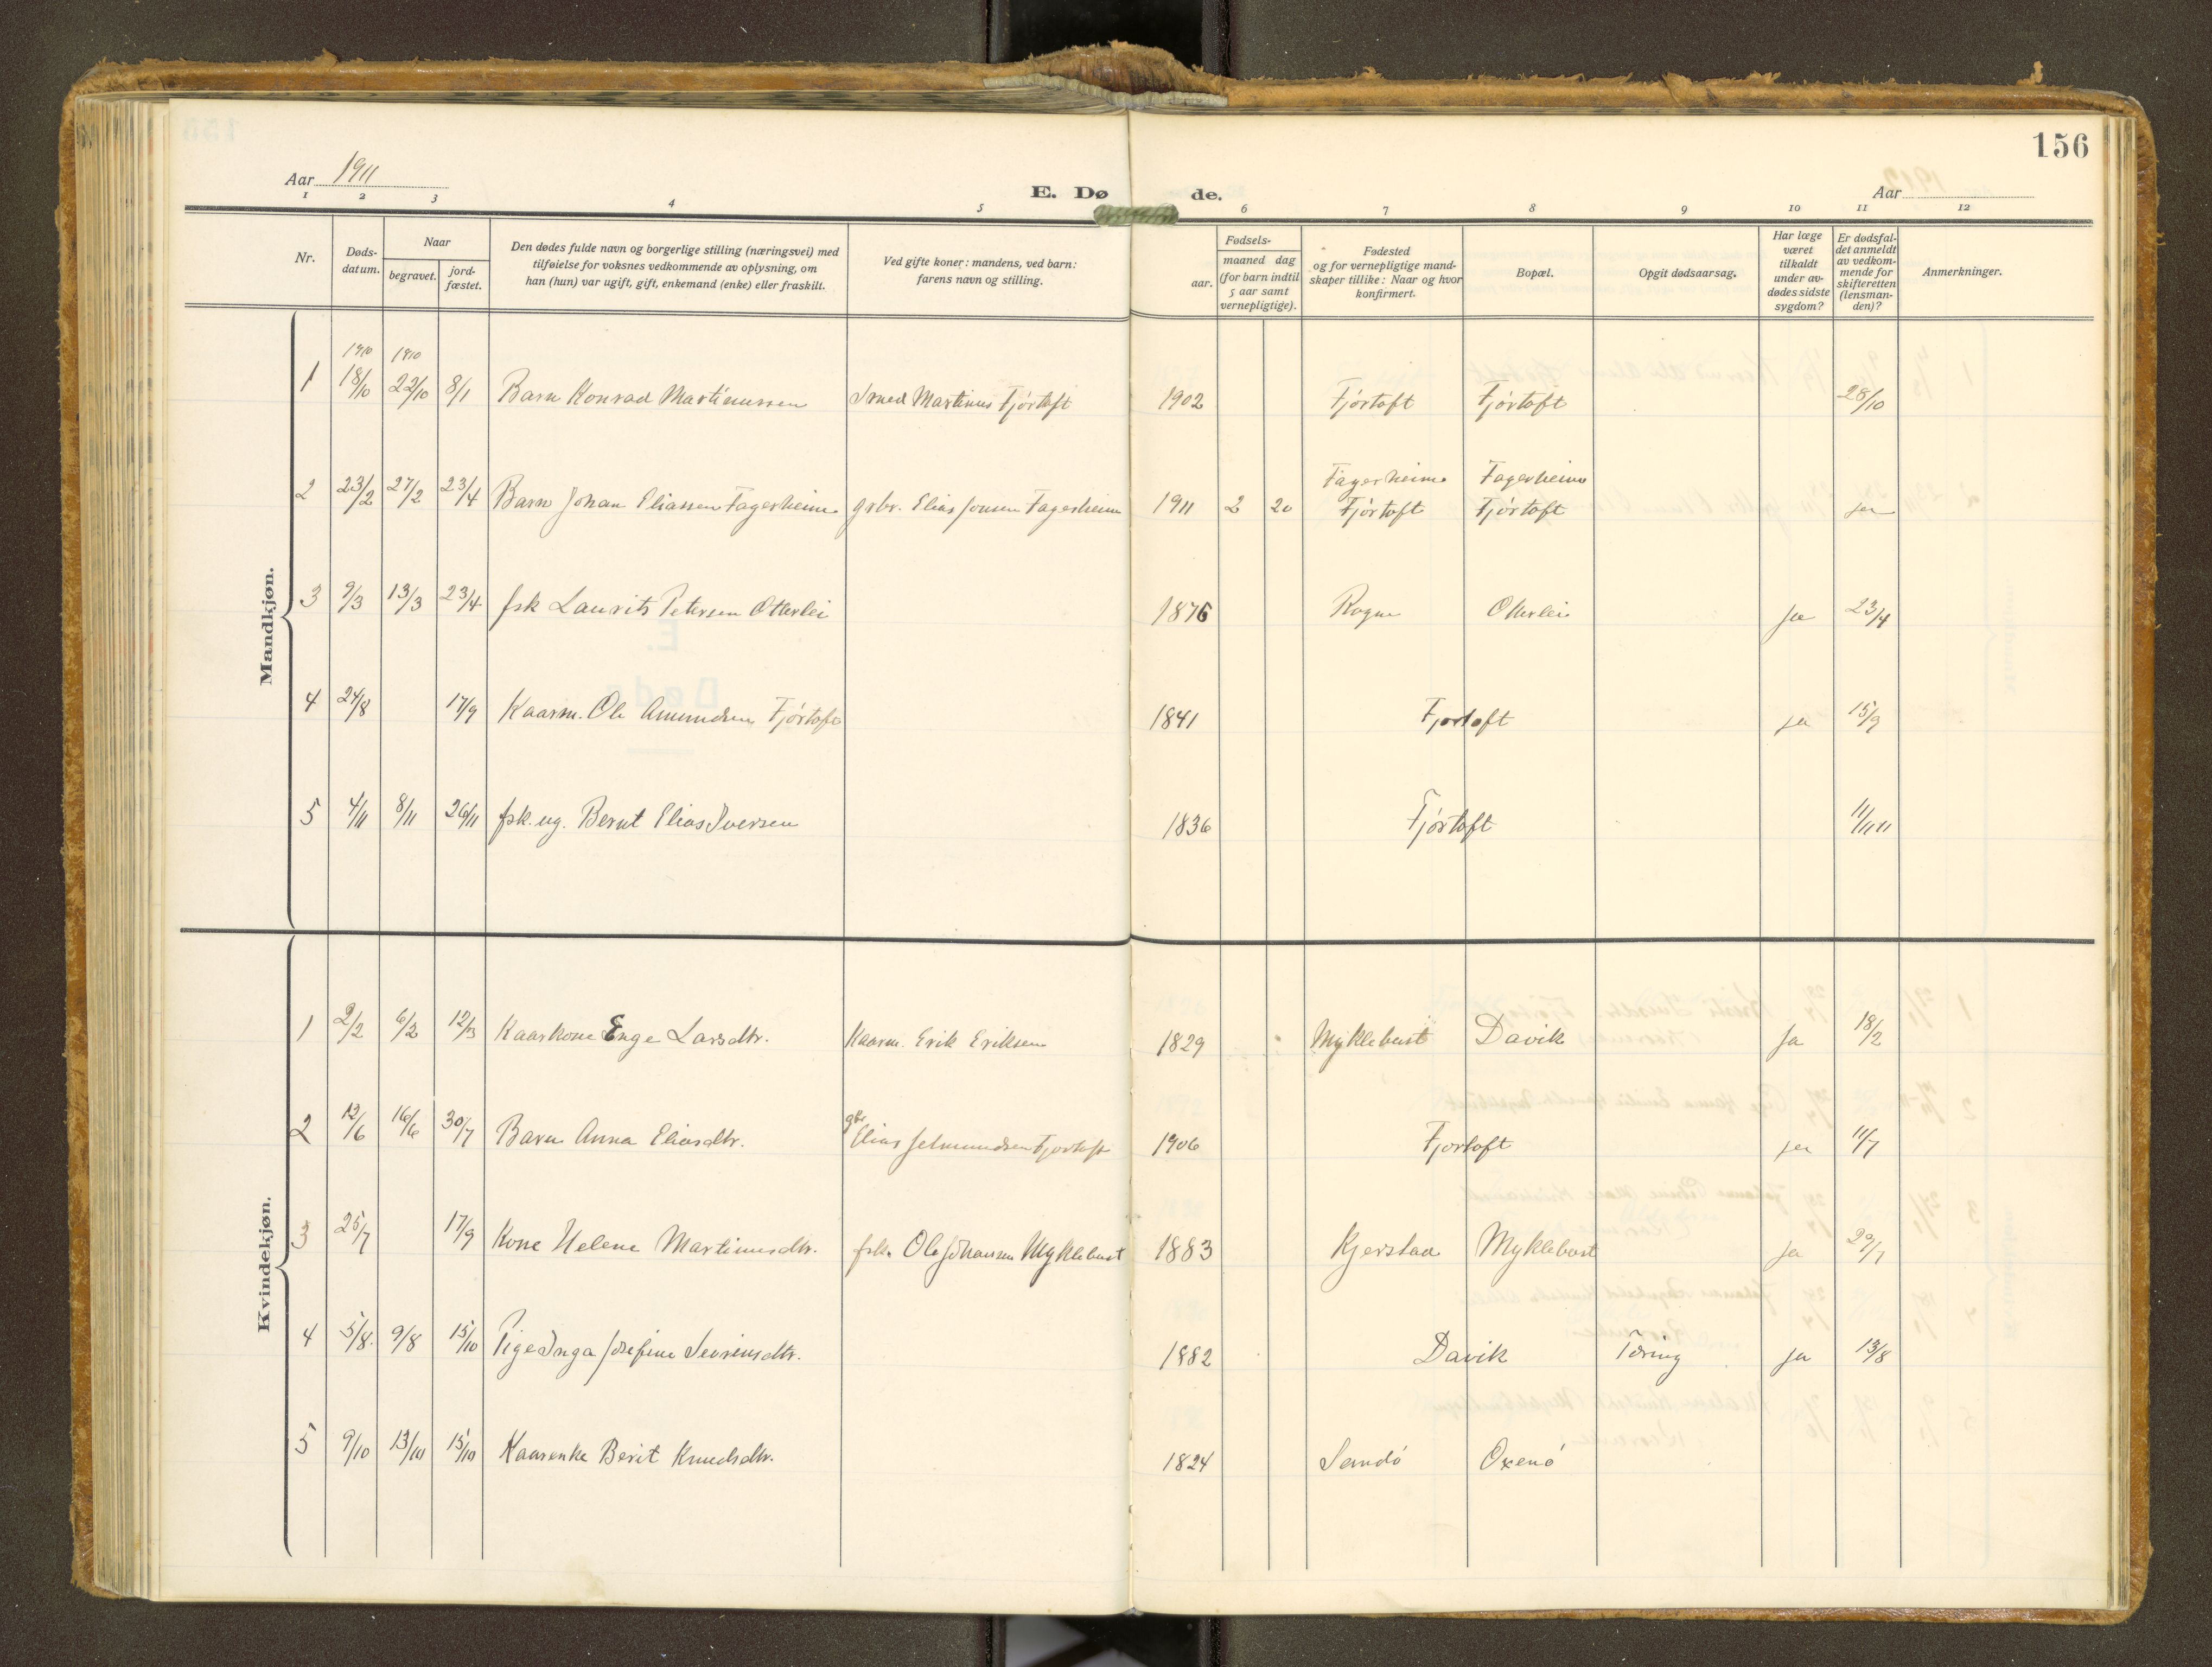 156
Aar 1911
E. Dø de.
Aar
1 2 3 4 5 6 7 8 9 10 11 12
Nr.
Døds-
datum.
Naar
begravet.
jord-
fæstet.
Den dødes fulde navn og borgerlige stilling (næringsvei) med
tilføielse for voksnes vedkommende av oplysning, om
han (hun) var ugift, gift, enkemand (enke) eller fraskilt.
Ved gifte koner: mandens, ved barn:
farens navn og stilling.
Fødsels-
aar.
maaned dag
(for barn indtil
5 aar samt
vernepligtige).
Fødested
og for vernepligtige mand-
skaper tillike: Naar og hvor
konfirmert.
Bopæl.
Opgit dødsaarsag.
Har læge
været
tilkaldt
under av-
dødes sidste
sygdom?
Er dødsfal-
det anmeldt
av vedkom-
mende for
skifteretten
(lensman-
den)?
Anmerkninger.
Mandkjøn.
1910 1910
1 18/10 22/10 8/1 Barn Konrad Martinussen Smed Martinus Fjörtoft 1902 Fjörtoft Fjörtoft 28/10
Fagerheim Fagerheim
2 23/2 27/2 23/4 Barn Johan Eliassen Fagerheim grbr. Elias Jonsen Fagerheim 1911 2 20 Fjörtoft Fjörtoft ja
3 9/3 13/3 23/4 fsk Laurits Petersen Otterlei 1876 Rogne Otterlei ja 23/4
4 24/8 17/9 Kaarm. Ole Amundsen Fjörtoft 1841 Fjortoft ja 15/9
5 4/11 8/11 26/11 fsk. ug. Bernt Elias Iversen 1836 Fjörtoft 11/11 11
Kvindekjøn.
1 2/2 6/2 12/3 Kaarkone Enge Larsdtr. Kaarm. Erik Eriksen 1829 Myklebust Davik Ja 18/2
2 12/6 16/6 30/7 Barn Anna Eliasdtr. gbr Elias Jetmundsen Fjortoft 1906 Fjortoft ja 11/7
3 25/7 17/9 Kone Helene Martinusdtr. fsk. Ole Johansen Myklebust 1883 Kjerstad Myklebust ja 29/7
4 5/8. 9/8 15/10 Pige Inga Josefine Severinsdtr. 1882 Davik Tæring ja 13/8
5 9/10 13/10 15/10 Kaarenke Berit Knudsdtr. 1824 Sandö Oxenö